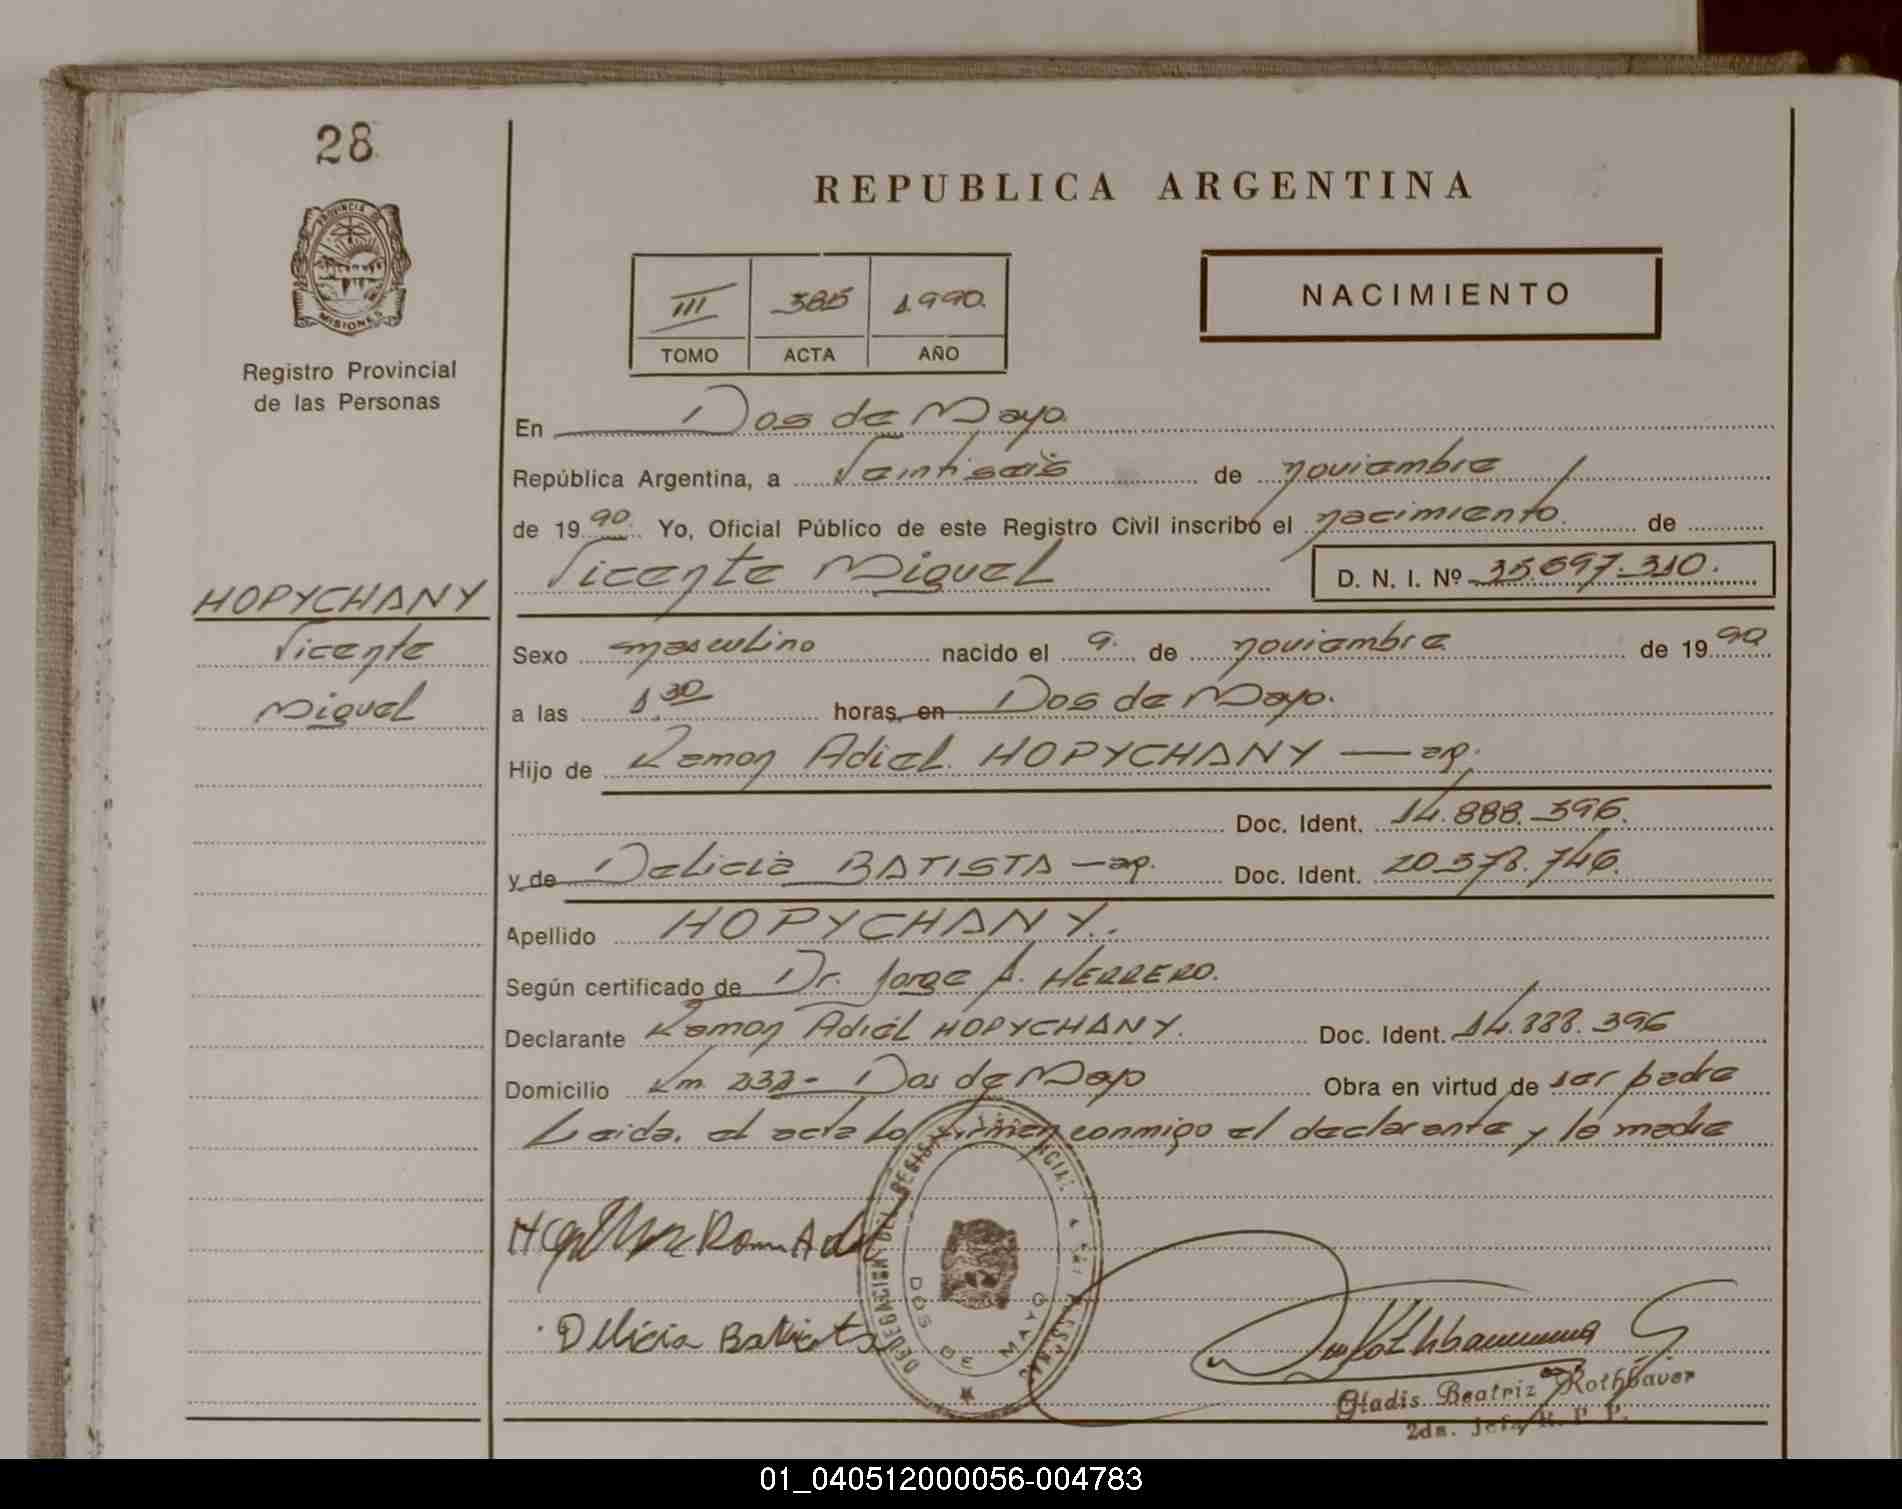 28
PROVINCIA DE
MISIONES
Registro Provincial
de las Personas
HOPYCHANY
Vicente
Miguel
REPUBLICA ARGENTINA
III 385 1990.
TOMO ACTA AÑO
NACIMIENTO
En Dos de Mayo
República Argentina, a Veintiseis de noviembre
de 19 90. Yo, Oficial Público de este Registro Civil inscribo el nacimiento de
Vicente Miguel D. N. I. Nº 35.697.310.
Sexo masculino nacido el 9. de noviembre de 19 90
a las 1.30 horas, en Dos de Mayo.
Hijo de Ramon Adiel HOPYCHANY — ap.
Doc. Ident. 14.888.396.
y de Delicia BATISTA — ap. Doc. Ident. 20.378.746.
Apellido HOPYCHANY.
Según certificado de Dr. Jorge A. HERRERO.
Declarante Ramon Adiel HOPYCHANY. Doc. Ident. 14.888.396
Domicilio Km. 233 - Dos de Mayo Obra en virtud de ser padre
Leida, el acta lo firman conmigo el declarante y la madre
Delicia Batista
DOS DE MAYO
Gladis Beatriz Rothbauer
2da. Jefa R. P. P.
01_040512000056-004783